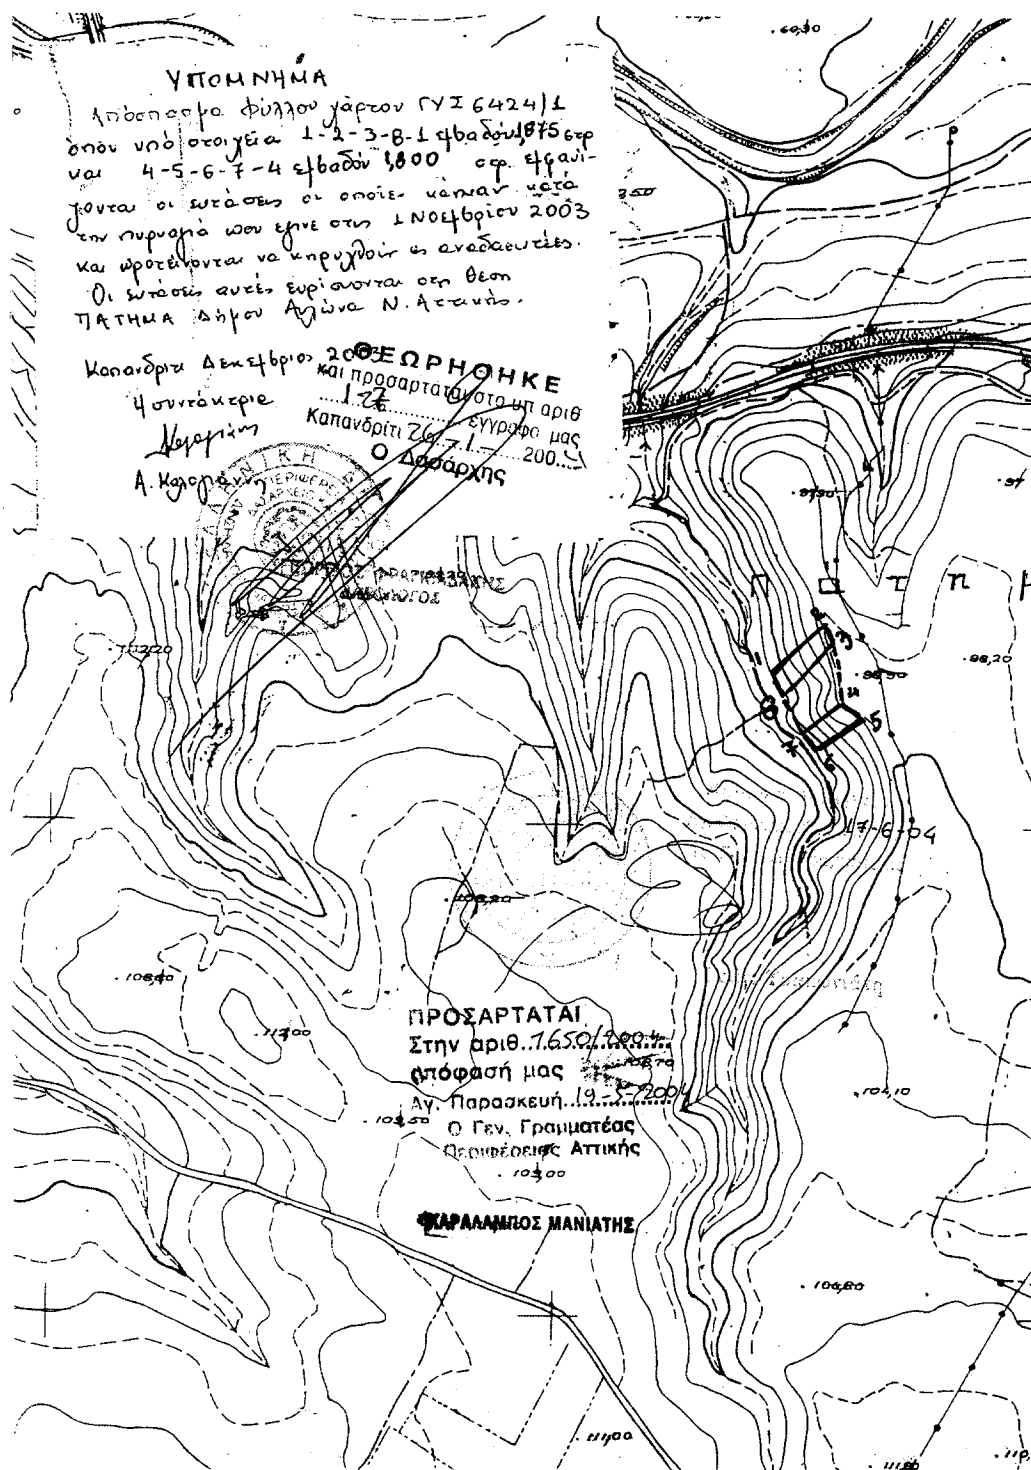 60,30
ΥΠΟΜΝΗΜΑ
Απόσπασμα φύλλου χάρτου ΓΥΣ 6424/1
όπου υπό στοιχεία 1-2-3-8-1 εμβαδού 1,875 στρ
και 4-5-6-7-4 εμβαδού 1,800 στρ. εμφανί-
ζονται οι εκτάσεις οι οποίες κάηκαν κατά
την πυρκαγιά που έγινε στις 1 ΝΟΕΜβρίου 2003
και προτείνονται να κηρυχθούν ως αναδασωτέες.
Οι εκτάσεις αυτές ευρίσκονται στη θέση
ΠΑΤΗΜΑ Δήμου Αυλώνα Ν. Αττικής.
Καπανδρίτι Δεκέμβριος 2003
Η συντάκτρια
Α. Καλογιάννη
ΘΕΩΡΗΘΗΚΕ
και προσαρτάται στο υπ αριθ
έγγραφο μας
Καπανδρίτι 26-1- 200
Ο Δασάρχης
ΔΑΣΟΛΟΓΟΣ
97,90
97
Π α τ η μ
112,20
2
3
1
98,20
98,90
4
8
5
7
6
17-6-04
108,20
108,80
112,00
ΠΡΟΣΑΡΤΑΤΑΙ
Στην αριθ. 1650/2004
απόφασή μας
108,70
Αγ. Παρασκευή 19-5-2004
104,10
Ο Γεν. Γραμματέας
Περιφέρειας Αττικής
103,00
ΧΑΡΑΛΑΜΠΟΣ ΜΑΝΙΑΤΗΣ
106,80
111,00
111,80
110,